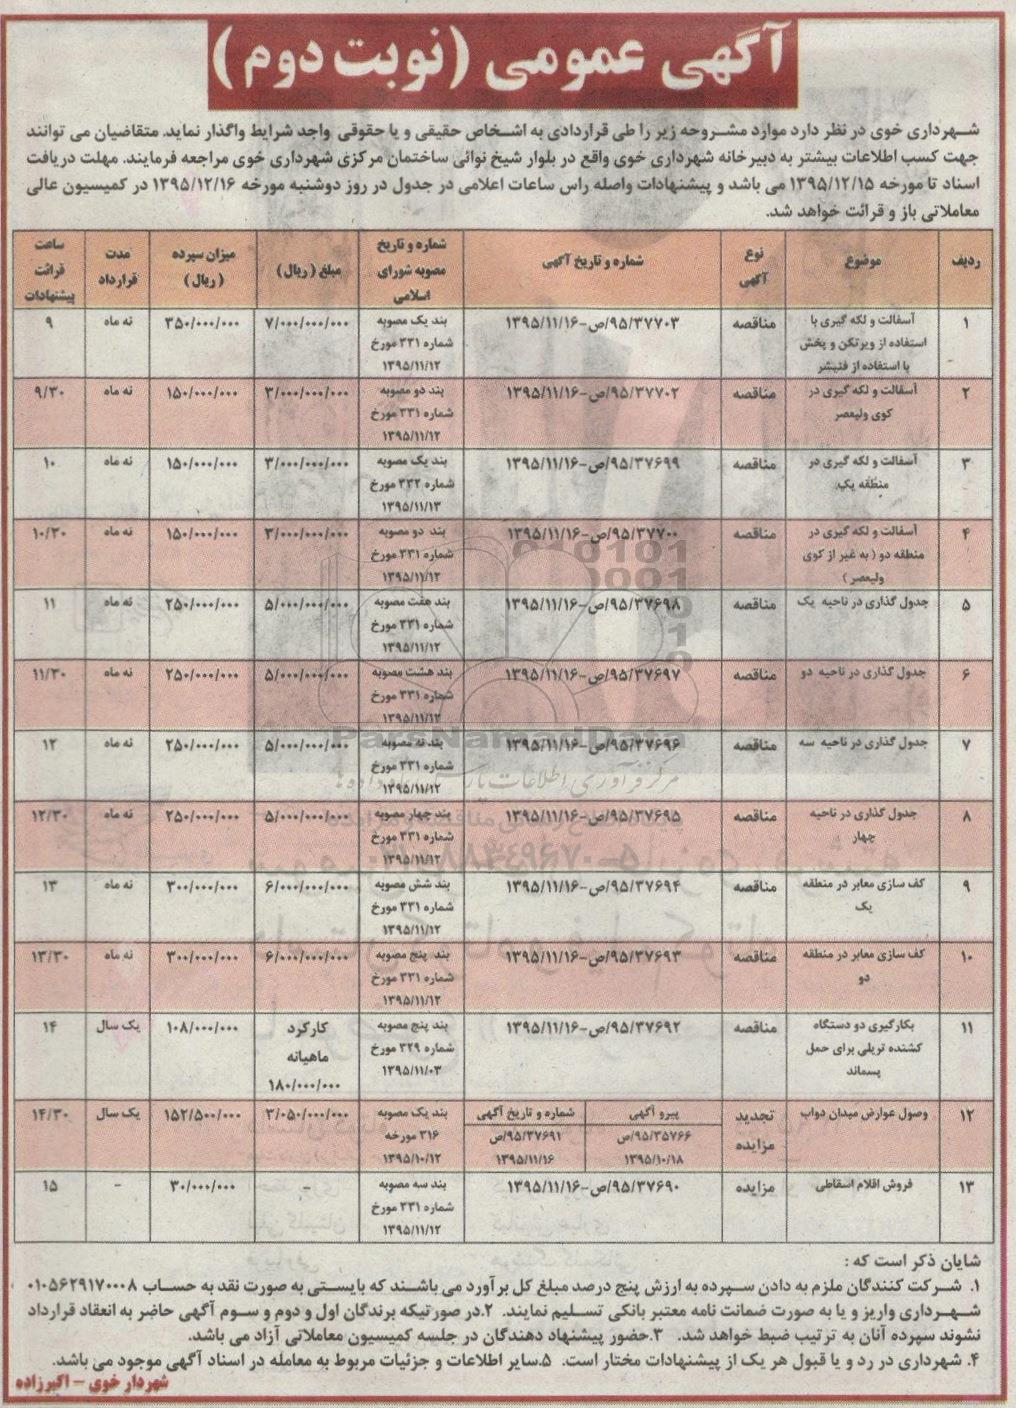 آگهی عمومی (نوبت دوم)
شهرداری خوی در نظر دارد موارد مشروحه زیر را طی قراردادی به اشخاص حقیقی و یا حقوقی واجد شرایط واگذار نماید. متقاضیان می توانند
جهت کسب اطلاعات بیشتر به دبیرخانه شهرداری خوی واقع در بلوار شیخ نوائی ساختمان مرکزی شهرداری خوی مراجعه فرمایند. مهلت دریافت
اسناد تا مورخه ۱۳۹۵/۱۲/۱۵ می باشد و پیشنهادات واصله راس ساعات اعلامی در جدول در روز دوشنبه مورخه ۱۳۹۵/۱۲/۱۶ در کمیسیون عالی
معاملاتی باز و قرائت خواهد شد.
ردیف موضوع نوع آگهی شماره و تاریخ آگهی شماره و تاریخ مصوبه شورای اسلامی مبلغ (ریال) میزان سپرده (ریال) مدت قرارداد ساعت قرائت پیشنهادات
۱ آسفالت و لکه گیری با استفاده از ویرتکن و پخش با استفاده از فنیشر مناقصه ۹۵/۳۷۷۰۳/ص-۱۳۹۵/۱۱/۱۶ بند یک مصوبه شماره ۳۳۱ مورخ ۱۳۹۵/۱۱/۱۲ ۷/۰۰۰/۰۰۰/۰۰۰ ۳۵۰/۰۰۰/۰۰۰ نه ماه ۹
۲ آسفالت و لکه گیری در کوی ولیعصر مناقصه ۹۵/۳۷۷۰۲/ص-۱۳۹۵/۱۱/۱۶ بند دو مصوبه شماره ۳۳۱ مورخ ۱۳۹۵/۱۱/۱۲ ۳/۰۰۰/۰۰۰/۰۰۰ ۱۵۰/۰۰۰/۰۰۰ نه ماه ۹/۳۰
۳ آسفالت و لکه گیری در منطقه یک مناقصه ۹۵/۳۷۶۹۹/ص-۱۳۹۵/۱۱/۱۶ بند یک مصوبه شماره ۳۳۲ مورخ ۱۳۹۵/۱۱/۱۳ ۳/۰۰۰/۰۰۰/۰۰۰ ۱۵۰/۰۰۰/۰۰۰ نه ماه ۱۰
۴ آسفالت و لکه گیری در منطقه دو (به غیر از کوی ولیعصر) مناقصه ۹۵/۳۷۷۰۰/ص-۱۳۹۵/۱۱/۱۶ بند دو مصوبه شماره ۳۳۱ مورخ ۱۳۹۵/۱۱/۱۲ ۳/۰۰۰/۰۰۰/۰۰۰ ۱۵۰/۰۰۰/۰۰۰ نه ماه ۱۰/۳۰
۵ جدول گذاری در ناحیه یک مناقصه ۹۵/۳۷۶۹۸/ص-۱۳۹۵/۱۱/۱۶ بند هفت مصوبه شماره ۳۳۱ مورخ ۱۳۹۵/۱۱/۱۲ ۵/۰۰۰/۰۰۰/۰۰۰ ۲۵۰/۰۰۰/۰۰۰ نه ماه ۱۱
۶ جدول گذاری در ناحیه دو مناقصه ۹۵/۳۷۶۹۷/ص-۱۳۹۵/۱۱/۱۶ بند هشت مصوبه شماره ۳۳۱ مورخ ۱۳۹۵/۱۱/۱۲ ۵/۰۰۰/۰۰۰/۰۰۰ ۲۵۰/۰۰۰/۰۰۰ نه ماه ۱۱/۳۰
۷ جدول گذاری در ناحیه سه مناقصه ۹۵/۳۷۶۹۶/ص-۱۳۹۵/۱۱/۱۶ بند نه مصوبه شماره ۳۳۱ مورخ ۱۳۹۵/۱۱/۱۲ ۵/۰۰۰/۰۰۰/۰۰۰ ۲۵۰/۰۰۰/۰۰۰ نه ماه ۱۲
۸ جدول گذاری در ناحیه چهار مناقصه ۹۵/۳۷۶۹۵/ص-۱۳۹۵/۱۱/۱۶ بند چهار مصوبه شماره ۳۳۱ مورخ ۱۳۹۵/۱۱/۱۲ ۵/۰۰۰/۰۰۰/۰۰۰ ۲۵۰/۰۰۰/۰۰۰ نه ماه ۱۲/۳۰
۹ کف سازی معابر در منطقه یک مناقصه ۹۵/۳۷۶۹۴/ص-۱۳۹۵/۱۱/۱۶ بند شش مصوبه شماره ۳۳۱ مورخ ۱۳۹۵/۱۱/۱۲ ۶/۰۰۰/۰۰۰/۰۰۰ ۳۰۰/۰۰۰/۰۰۰ نه ماه ۱۳
۱۰ کف سازی معابر در منطقه دو مناقصه ۹۵/۳۷۶۹۳/ص-۱۳۹۵/۱۱/۱۶ بند پنج مصوبه شماره ۳۳۱ مورخ ۱۳۹۵/۱۱/۱۲ ۶/۰۰۰/۰۰۰/۰۰۰ ۳۰۰/۰۰۰/۰۰۰ نه ماه ۱۳/۳۰
۱۱ بکارگیری دو دستگاه کشنده تریلی برای حمل پسماند مناقصه ۹۵/۳۷۶۹۲/ص-۱۳۹۵/۱۱/۱۶ بند پنج مصوبه شماره ۳۲۹ مورخ ۱۳۹۵/۱۱/۰۳ کارکرد ماهیانه ۱۸۰/۰۰۰/۰۰۰ ۱۰۸/۰۰۰/۰۰۰ یک سال ۱۴
۱۲ وصول عوارض میدان دواب تجدید مزایده پیرو آگهی ۹۵/۳۵۷۶۶/ص ۱۳۹۵/۱۰/۱۸ شماره و تاریخ آگهی ۹۵/۳۷۶۹۱/ص ۱۳۹۵/۱۱/۱۶ بند یک مصوبه ۳۱۶ مورخه ۱۳۹۵/۱۰/۱۲ ۳/۰۵۰/۰۰۰/۰۰۰ ۱۵۲/۵۰۰/۰۰۰ یک سال ۱۴/۳۰
۱۳ فروش اقلام اسقاطی مزایده ۹۵/۳۷۶۹۰/ص-۱۳۹۵/۱۱/۱۶ بند سه مصوبه شماره ۳۳۱ مورخ ۱۳۹۵/۱۱/۱۲ - ۳۰/۰۰۰/۰۰۰ - ۱۵
ParsNamadData
شایان ذکر است که :
۱. شرکت کنندگان ملزم به دادن سپرده به ارزش پنج درصد مبلغ کل برآورد می باشند که بایستی به صورت نقد به حساب ۰۱۰۵۶۲۹۱۷۰۰۰۸
شهرداری واریز و یا به صورت ضمانت نامه معتبر بانکی تسلیم نمایند. ۲.در صورتیکه برندگان اول و دوم و سوم آگهی حاضر به انعقاد قرارداد
نشوند سپرده آنان به ترتیب ضبط خواهد شد. ۳.حضور پیشنهاد دهندگان در جلسه کمیسیون معاملاتی آزاد می باشد.
۴. شهرداری در رد و یا قبول هر یک از پیشنهادات مختار است. ۵.سایر اطلاعات و جزئیات مربوط به معامله در اسناد آگهی موجود می باشد.
شهردار خوی – اکبرزاده